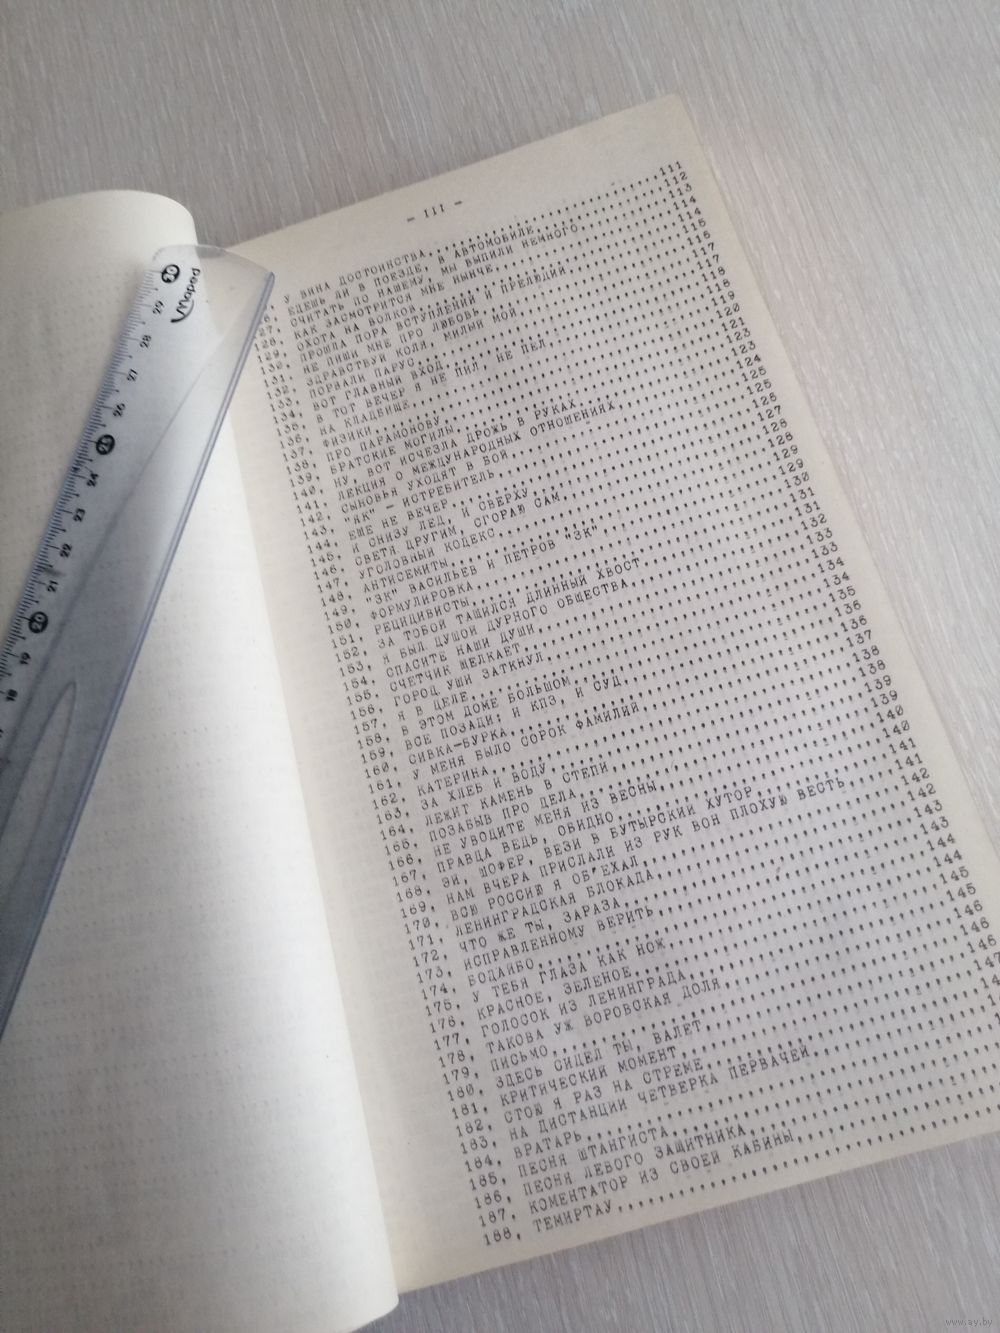 - 111 -
У ВИНА ДОСТОИНСТВА 111
126. ЕДЕШЬ ЛИ В ПОЕЗДЕ, В АВТОМОБИЛЕ 112
127. СЧИТАТЬ ПО НАШЕМУ, МЫ ВЫПИЛИ НЕМНОГО 113
128. КАК ЗАСМОТРИТСЯ МНЕ НЫНЧЕ 114
129. ОХОТА НА ВОЛКОВ 114
130. ПРОШЛА ПОРА ВСТУПЛЕНИЙ И ПРЕЛЮДИЙ 115
131. НЕ ПИШИ МНЕ ПРО ЛЮБОВЬ 115
132. ЗДРАВСТВУЙ КОЛЯ, МИЛЫЙ МОЙ 117
133. ПОРВАЛИ ПАРУС 117
134. ВОТ ГЛАВНЫЙ ВХОД 118
135. В ТОТ ВЕЧЕР Я НЕ ПИЛ, НЕ ПЕЛ 118
136. НА КЛАДБИЩЕ 119
137. ФИЗИКИ 120
138. ПРО ПАРАМОНОВУ 121
139. БРАТСКИЕ МОГИЛЫ 123
140. НУ, ВОТ ИСЧЕЗЛА ДРОЖЬ В РУКАХ 123
141. ЛЕКЦИЯ О МЕЖДУНАРОДНЫХ ОТНОШЕНИЯХ 124
142. СЫНОВЬЯ УХОДЯТ В БОЙ 125
143. "ЯК" - ИСТРЕБИТЕЛЬ 125
144. ЕЩЕ НЕ ВЕЧЕР 125
145. И СНИЗУ ЛЕД, И СВЕРХУ 127
146. СВЕТЯ ДРУГИМ, СГОРАЮ САМ 127
147. УГОЛОВНЫЙ КОДЕКС 128
148. АНТИСЕМИТЫ 128
149. "ЗК" ВАСИЛЬЕВ И ПЕТРОВ "ЗК" 129
150. ФОРМУЛИРОВКА 130
151. РЕЦИДИВИСТЫ 131
152. ЗА ТОБОЙ ТАЩИЛСЯ ДЛИННЫЙ ХВОСТ 131
153. Я БЫЛ ДУШОЙ ДУРНОГО ОБЩЕСТВА 132
154. СПАСИТЕ НАШИ ДУШИ 133
155. СЧЕТЧИК ЩЕЛКАЕТ 133
156. ГОРОД УШИ ЗАТКНУЛ 134
157. Я В ДЕЛЕ 134
158. В ЭТОМ ДОМЕ БОЛЬШОМ 135
159. ВСЕ ПОЗАДИ: И КПЗ, И СУД 136
160. СИВКА-БУРКА 136
161. У МЕНЯ БЫЛО СОРОК ФАМИЛИЙ 137
162. КАТЕРИНА 138
163. ЗА ХЛЕБ И ВОДУ 138
164. ЛЕЖИТ КАМЕНЬ В СТЕПИ 139
165. ПОЗАБЫВ ПРО ДЕЛА 139
166. НЕ УВОДИТЕ МЕНЯ ИЗ ВЕСНЫ 140
167. ПРАВДА ВЕДЬ, ОБИДНО 140
168. ЭЙ, ШОФЕР, ВЕЗИ В БУТЫРСКИЙ ХУТОР 141
169. НАМ ВЧЕРА ПРИСЛАЛИ ИЗ РУК ВОН ПЛОХУЮ ВЕСТЬ 141
170. ВСЮ РОССИЮ Я ОБ'ЕХАЛ 142
171. ЛЕНИНГРАДСКАЯ БЛОКАДА 142
172. ЧТО ЖЕ ТЫ, ЗАРАЗА 143
173. ИСПРАВЛЕННОМУ ВЕРИТЬ 143
174. БОДАЙБО 144
175. У ТЕБЯ ГЛАЗА КАК НОЖ 144
176. КРАСНОЕ, ЗЕЛЕНОЕ 145
177. ГОЛОСОК ИЗ ЛЕНИНГРАДА 145
178. ТАКОВА УЖ ВОРОВСКАЯ ДОЛЯ 146
179. ПИСЬМО 146
180. ЗДЕСЬ СИДЕЛ ТЫ, ВАЛЕТ 146
181. КРИТИЧЕСКИЙ МОМЕНТ 147
182. СТОЮ Я РАЗ НА СТРЕМЕ
183. НА ДИСТАНЦИИ ЧЕТВЕРКА ПЕРВАЧЕЙ
184. ВРАТАРЬ
185. ПЕСНЯ ШТАНГИСТА
186. ПЕСНЯ ЛЕВОГО ЗАЩИТНИКА
187. КОМЕНТАТОР ИЗ СВОЕЙ КАБИНЫ
188. ТЕМИРТАУ
Maped
30 29 28 27 26 25 24 23 22 21 20 19 18
www.ay.by